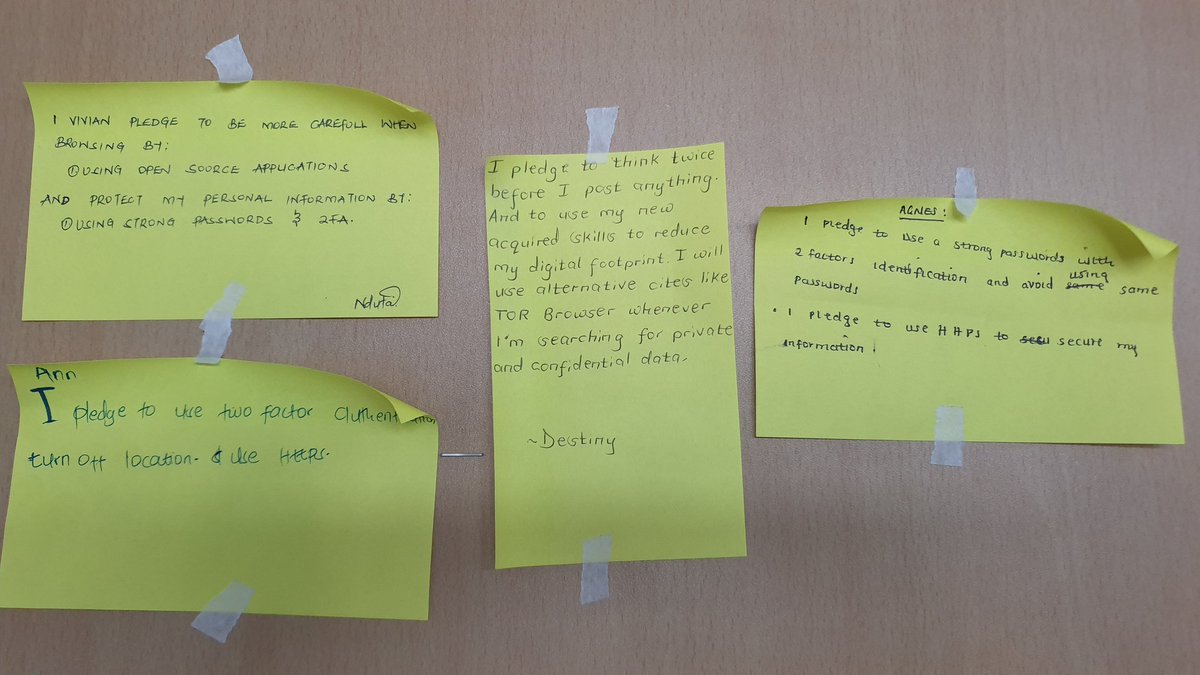 I VIVIAN PLEDGE TO BE MORE CAREFULL WHEN
BROWSING BY:
① USING OPEN SOURCE APPLICATIONS
AND PROTECT MY PERSONAL INFORMATION BY:
① USING STRONG PASSWORDS & 2FA.
Nduta
Ann
I pledge to use two factor
turn off location. & use HTTPS.
I pledge to think twice
before I post anything.
And to use my new
acquired skills to reduce
my digital footprint. I will
use alternative cites like
TOR Browser whenever
I'm searching for private
and confidential data.
~Destiny
AGNES:
I pledge to use a strong passwords with
2 factors identification and avoid using same
passwords
• I pledge to use HTTPS to secure my
information.